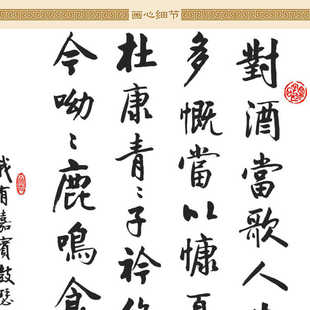 画心细节
對酒當歌人
多慨當以慷
杜康青〻子衿
今呦〻鹿鳴食
我有嘉賓鼓瑟